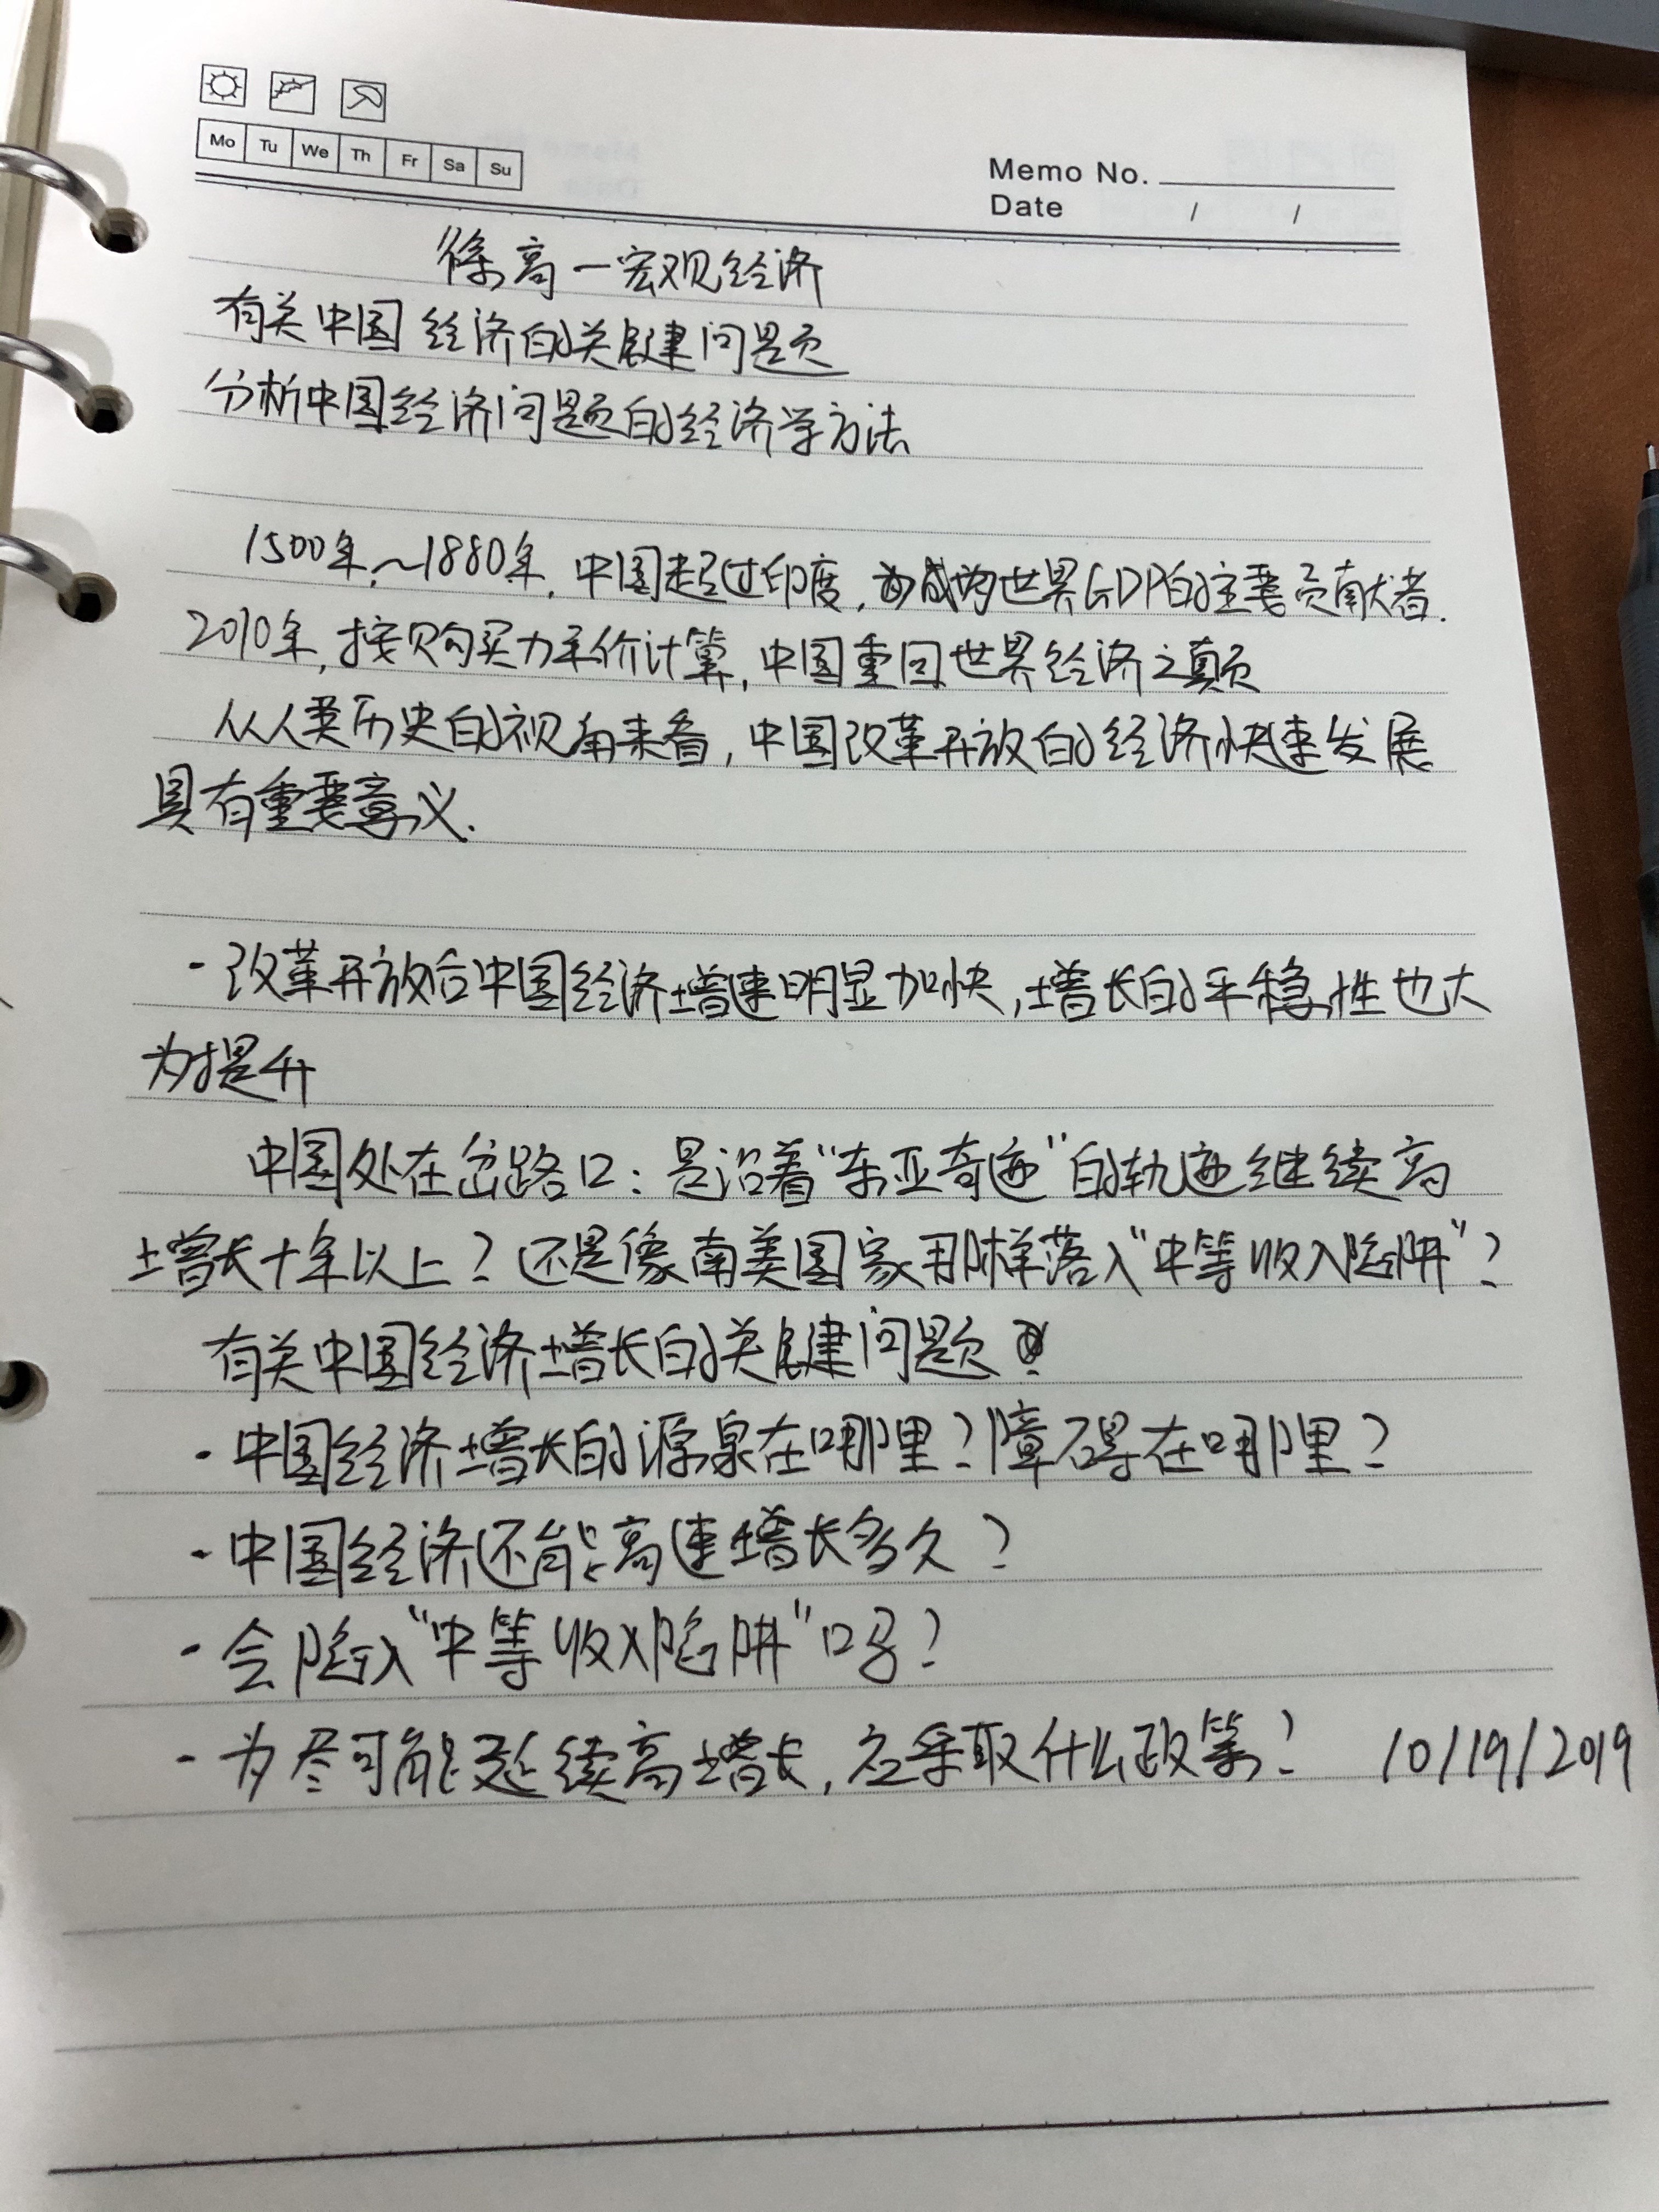 Mo Tu We Th Fr Sa Su
Memo No.
Date / /
徐高一宏观经济
有关中国经济的关键问题
分析中国经济问题的经济学方法
1500年~1880年,中国超过印度,成为世界GDP的主要贡献者.
2010年,按购买力平价计算,中国重回世界经济之巅
从人类历史的视角来看,中国改革开放的经济快速发展
具有重要意义.
-改革开放后中国经济增速明显加快,增长的平稳性也大
为提升
中国处在岔路口:是沿着“东亚奇迹”的轨迹继续高
增长十年以上?还是像南美国家那样落入“中等收入陷阱”?
有关中国经济增长的关键问题
·中国经济增长的源泉在哪里?障碍在哪里?
-中国经济还能高速增长多久?
·会陷入“中等收入陷阱”吗?
-为尽可能延续高增长,应采取什么政策? 10/19/2019